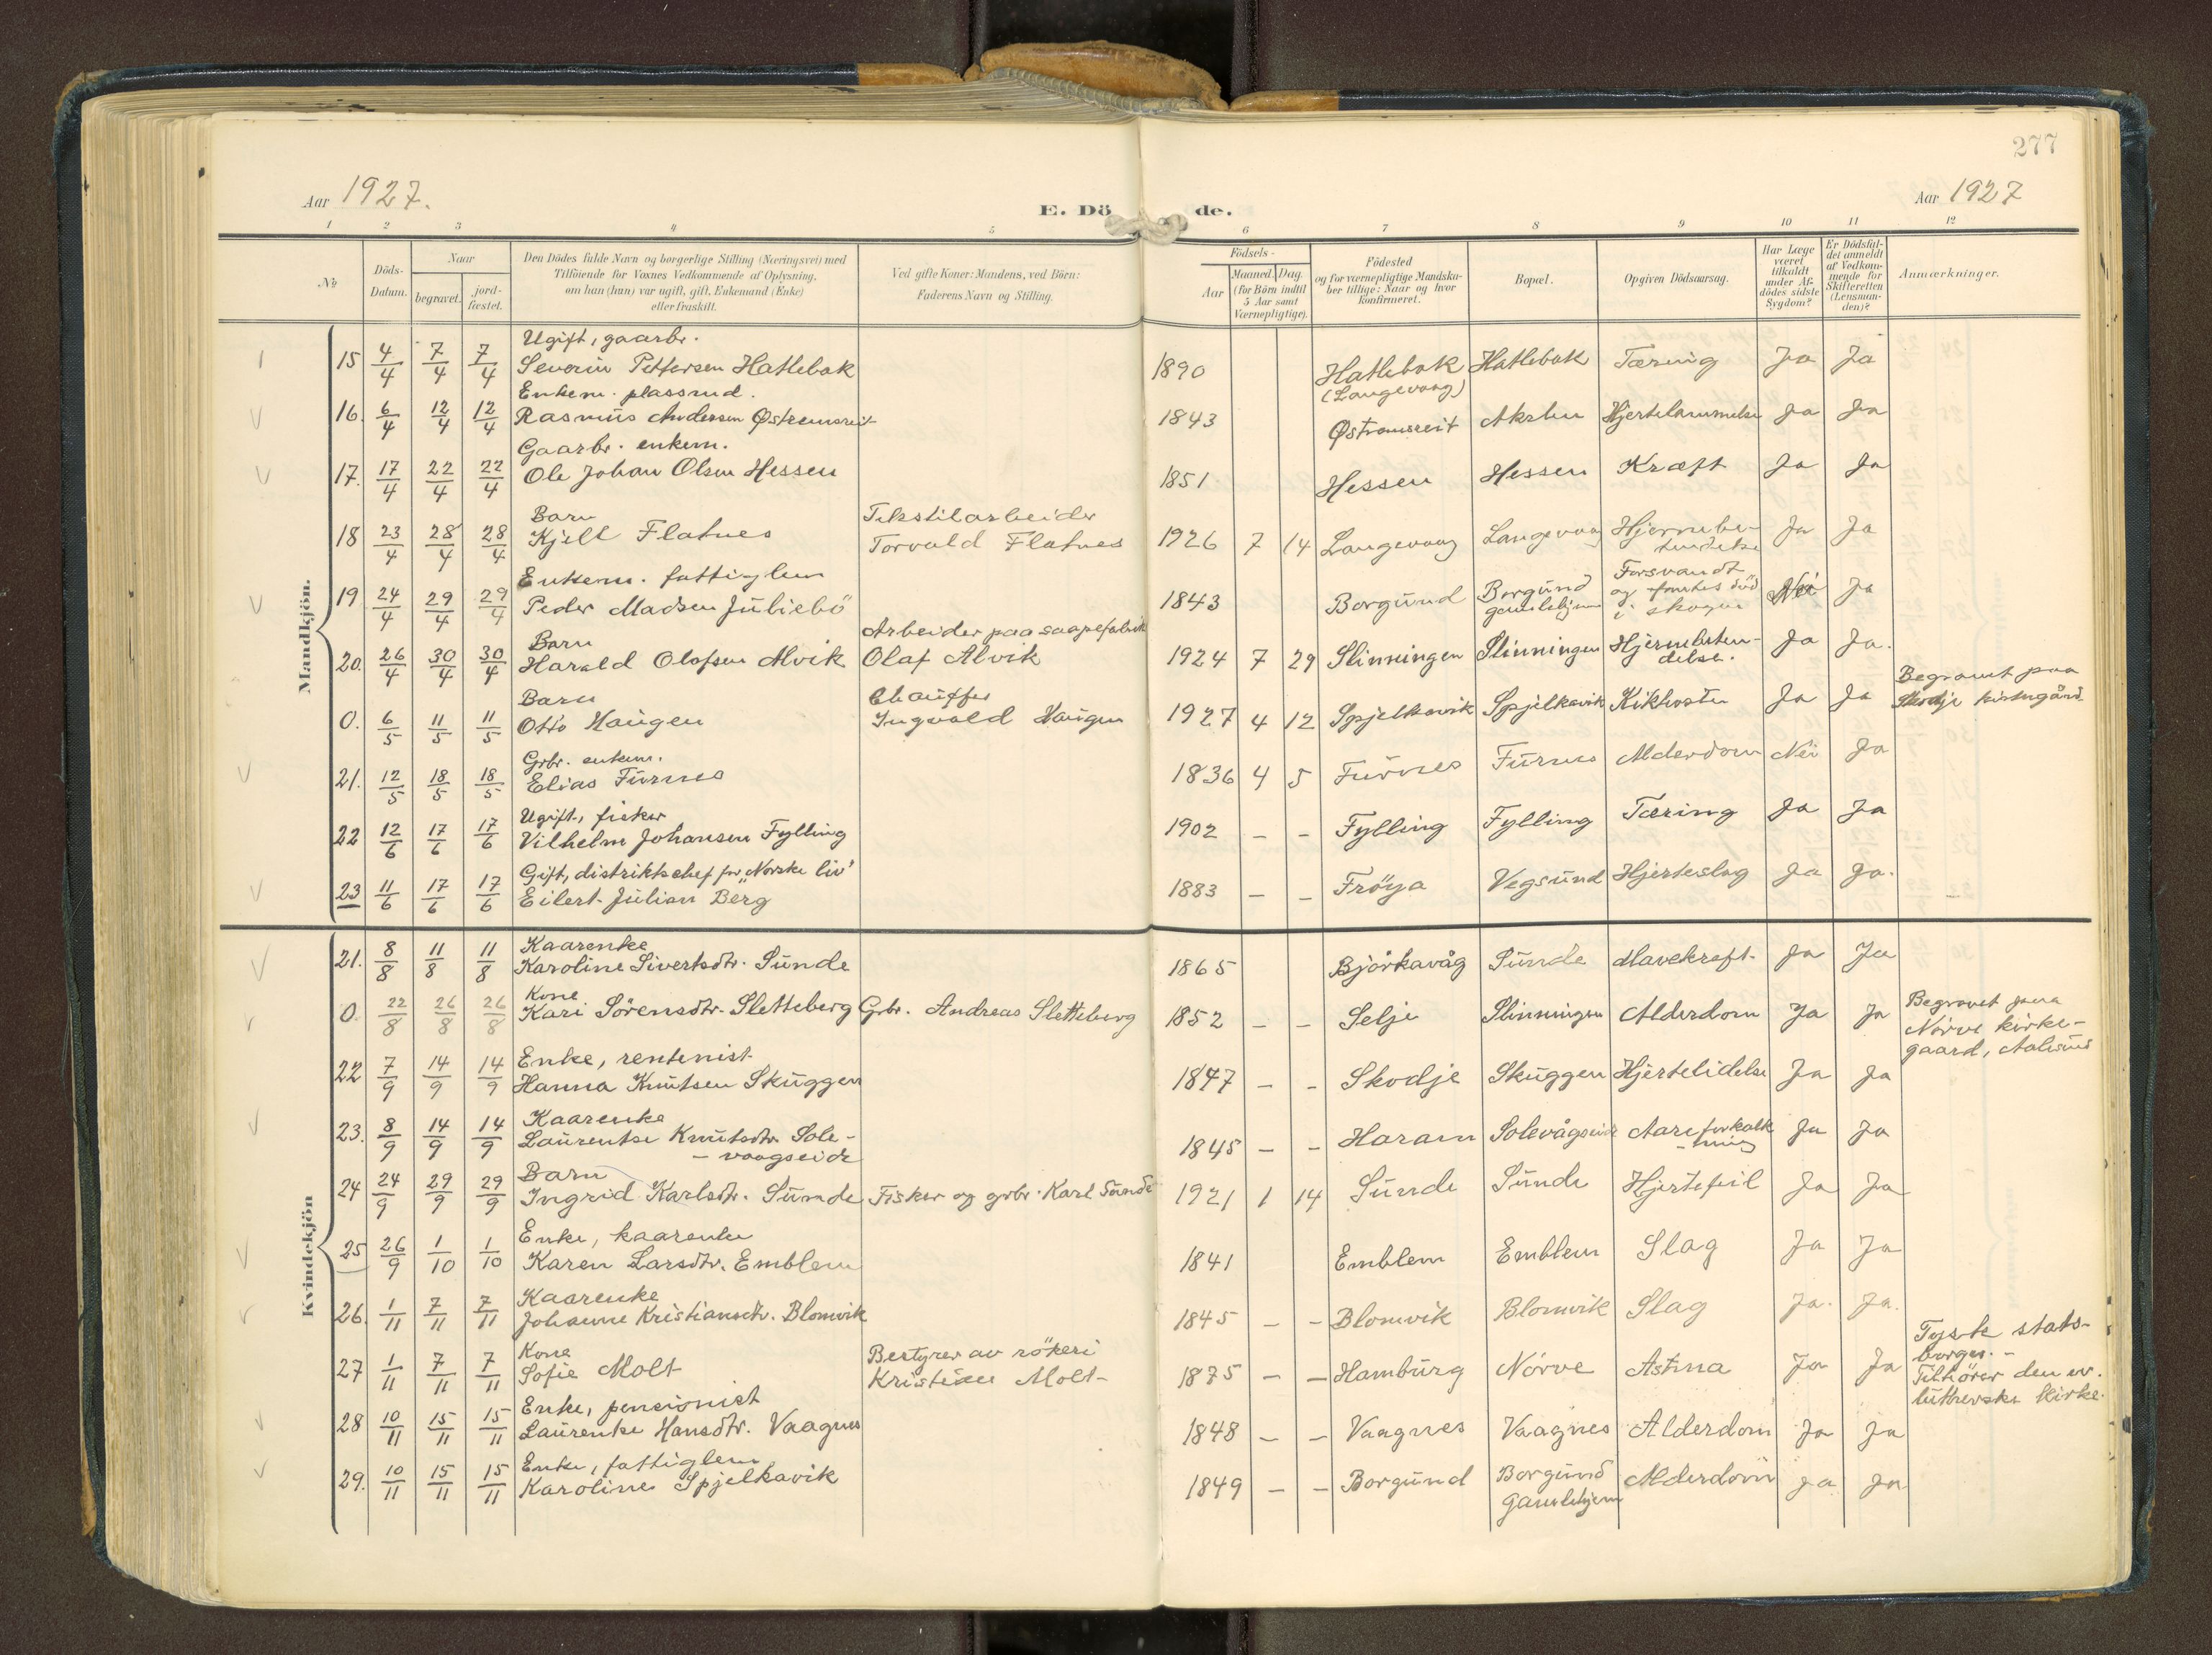 277
Aar 1927.
E. Dö de.
Aar 1927
1 2 3 4 5 6 7 8 9 10 11 12
No
Döds-Datum.
Naar
begravet.
jord-fæstet.
Den Dödes fulde Navn og borgerlige Stilling (Næringsvei) med
Tilföiende for Voxnes Vedkommende af Oplysning,
om han (hun) var ugift, gift, Enkemand (Enke)
eller fraskilt.
Ved gifte Koner: Mandens, ved Börn:
Faderens Navn og Stilling.
Födsels-
Aar
Maaned. Dag.
(for Börn indtil
5 Aar samt
Værnepligtige).
Födested
og for værnepligtige Mandska-
ber tillige: Naar og hvor
konfirmeret.
Bopæl.
Opgiven Dödsaarsag.
Har Læge
været
tilkaldt
under Af-
dödes sidste
Sygdom?
Er Dödsfal-
det anmeldt
af Vedkom-
mende for
Skifteretten
(Lensman-
den)?
Anmærkninger.
Mandkjön.
Ugift, gaarbr.
15 4/4 7/4 7/4 Severin Pettersen Hatlebak 1890 Hatlebak Hatlebak Tæring Ja Ja
(Langevaag)
Enkem. plassmd.
16. 6/4 12/4 12/4 Rasmus Andersen Østremsreit 1843 Østremsreit Hjertelammelse Ja Ja
Gaarbr. enkem.
17. 17/4 22/4 22/4 Ole Johan Olsen Hessen 1851 Hessen Hessen Kræft Ja Ja
Barn Tekstilarbeider
18 23/4 28/4 28/4 Kjell Flatnes Torvald Flatnes 1926 7 14 Langevaag Langevaag Hjernebe-
tendelse Ja Ja
Enkem. fattiglem
19 24/4 29/4 29/4 Peder Madsen Juliebö 1843 Borgund Borgund
gamlehjem Forsvandt
og fantes död
i skogen Nei Ja
Barn Arbeider paa saapefabrik
20. 26/4 30/4 30/4 Harald Olafsen Alvik Olaf Alvik 1924 7 29 Slinningen Slinningen Hjernebeten-
delse. Ja Ja.
Barn Chauffer
0. 6/5 11/5 11/5 Otto Haugen Ingvald Haugen 1927 4 12 Spjelkavik Spjelkavik Kikhoste Ja Ja Begravet paa
Skodje kirkegård
Grbr. enkem.
21. 12/5 18/5 18/5 Elias Furnes 1836 4 5 Furnes Furnes Alderdom Nei Ja
Ugift, fisker
22 12/6 17/6 17/6 Vilhelm Johansen Fylling 1902 - - Fylling Fylling Tæring Ja Ja
Gift, distriktschef for "Norske liv"
23 11/6 17/6 17/6 Eilert Julian Berg 1883 - - Fröya Vegsund Hjerteslag Ja Ja.
Kvindekjön
Kaarenke
21. 8/8 11/8 11/8 Karoline Sivertsdtr. Sunde 1865 Björkavåg Sunde Mavekreft Ja Ja
Kone
0. 22/8 26/8 26/8 Kari Sörensdtr. Sletteberg Grbr. Andreas Sletteberg 1852 - - Selje Slinningen Alderdom Ja Ja Begravet paa
Nörve kirke-
gaard, Aalesund
Enke, rentenist
22 7/9 14/9 14/9 Hanna Knutsen Skuggen 1847 - - Skodje Skuggen Hjertelidelse Ja Ja
Kaarenke
23. 8/9 14/9 14/9 Laurentse Knutsdtr. Sole-
- vaagseide 1845 - - Haram Solevågseide Aareforkalk
- ning Ja Ja
Barn
24 24/9 29/9 29/9 Ingrid Karlsdtr. Sunde Fisker og grbr. Karl Sunde 1921 1 14 Sunde Sunde Hjertefeil Ja Ja
Enke, kaarenke
25 26/9 1/10 1/10 Karen Larsdtr. Emblem 1841 Emblem Emblem Slag Ja Ja
Kaarenke
26. 1/11 7/11 7/11 Johanne Kristiansdtr. Blomvik 1845 - - Blomvik Blomvik Slag Ja. Ja.
Kone Bestyrer av rökeri
27 1/11 7/11 7/11 Sofie Molt Kristian Molt 1875 - - Hamburg Nörve Astma Ja Ja Tysk stats-
borger. -
Tilhörer den ev.
lutherske kirke.
Enke, pensionist
28 10/11 15/11 15/11 Laurentse Hansdtr. Vaagnes 1848 - - Vaagnes Vaagnes Alderdom Ja Ja
Enke, fattiglem
29. 10/11 15/11 15/11 Karoline Spjelkavik 1849 - - Borgund Borgund
Gamlehjem Alderdom Ja Ja